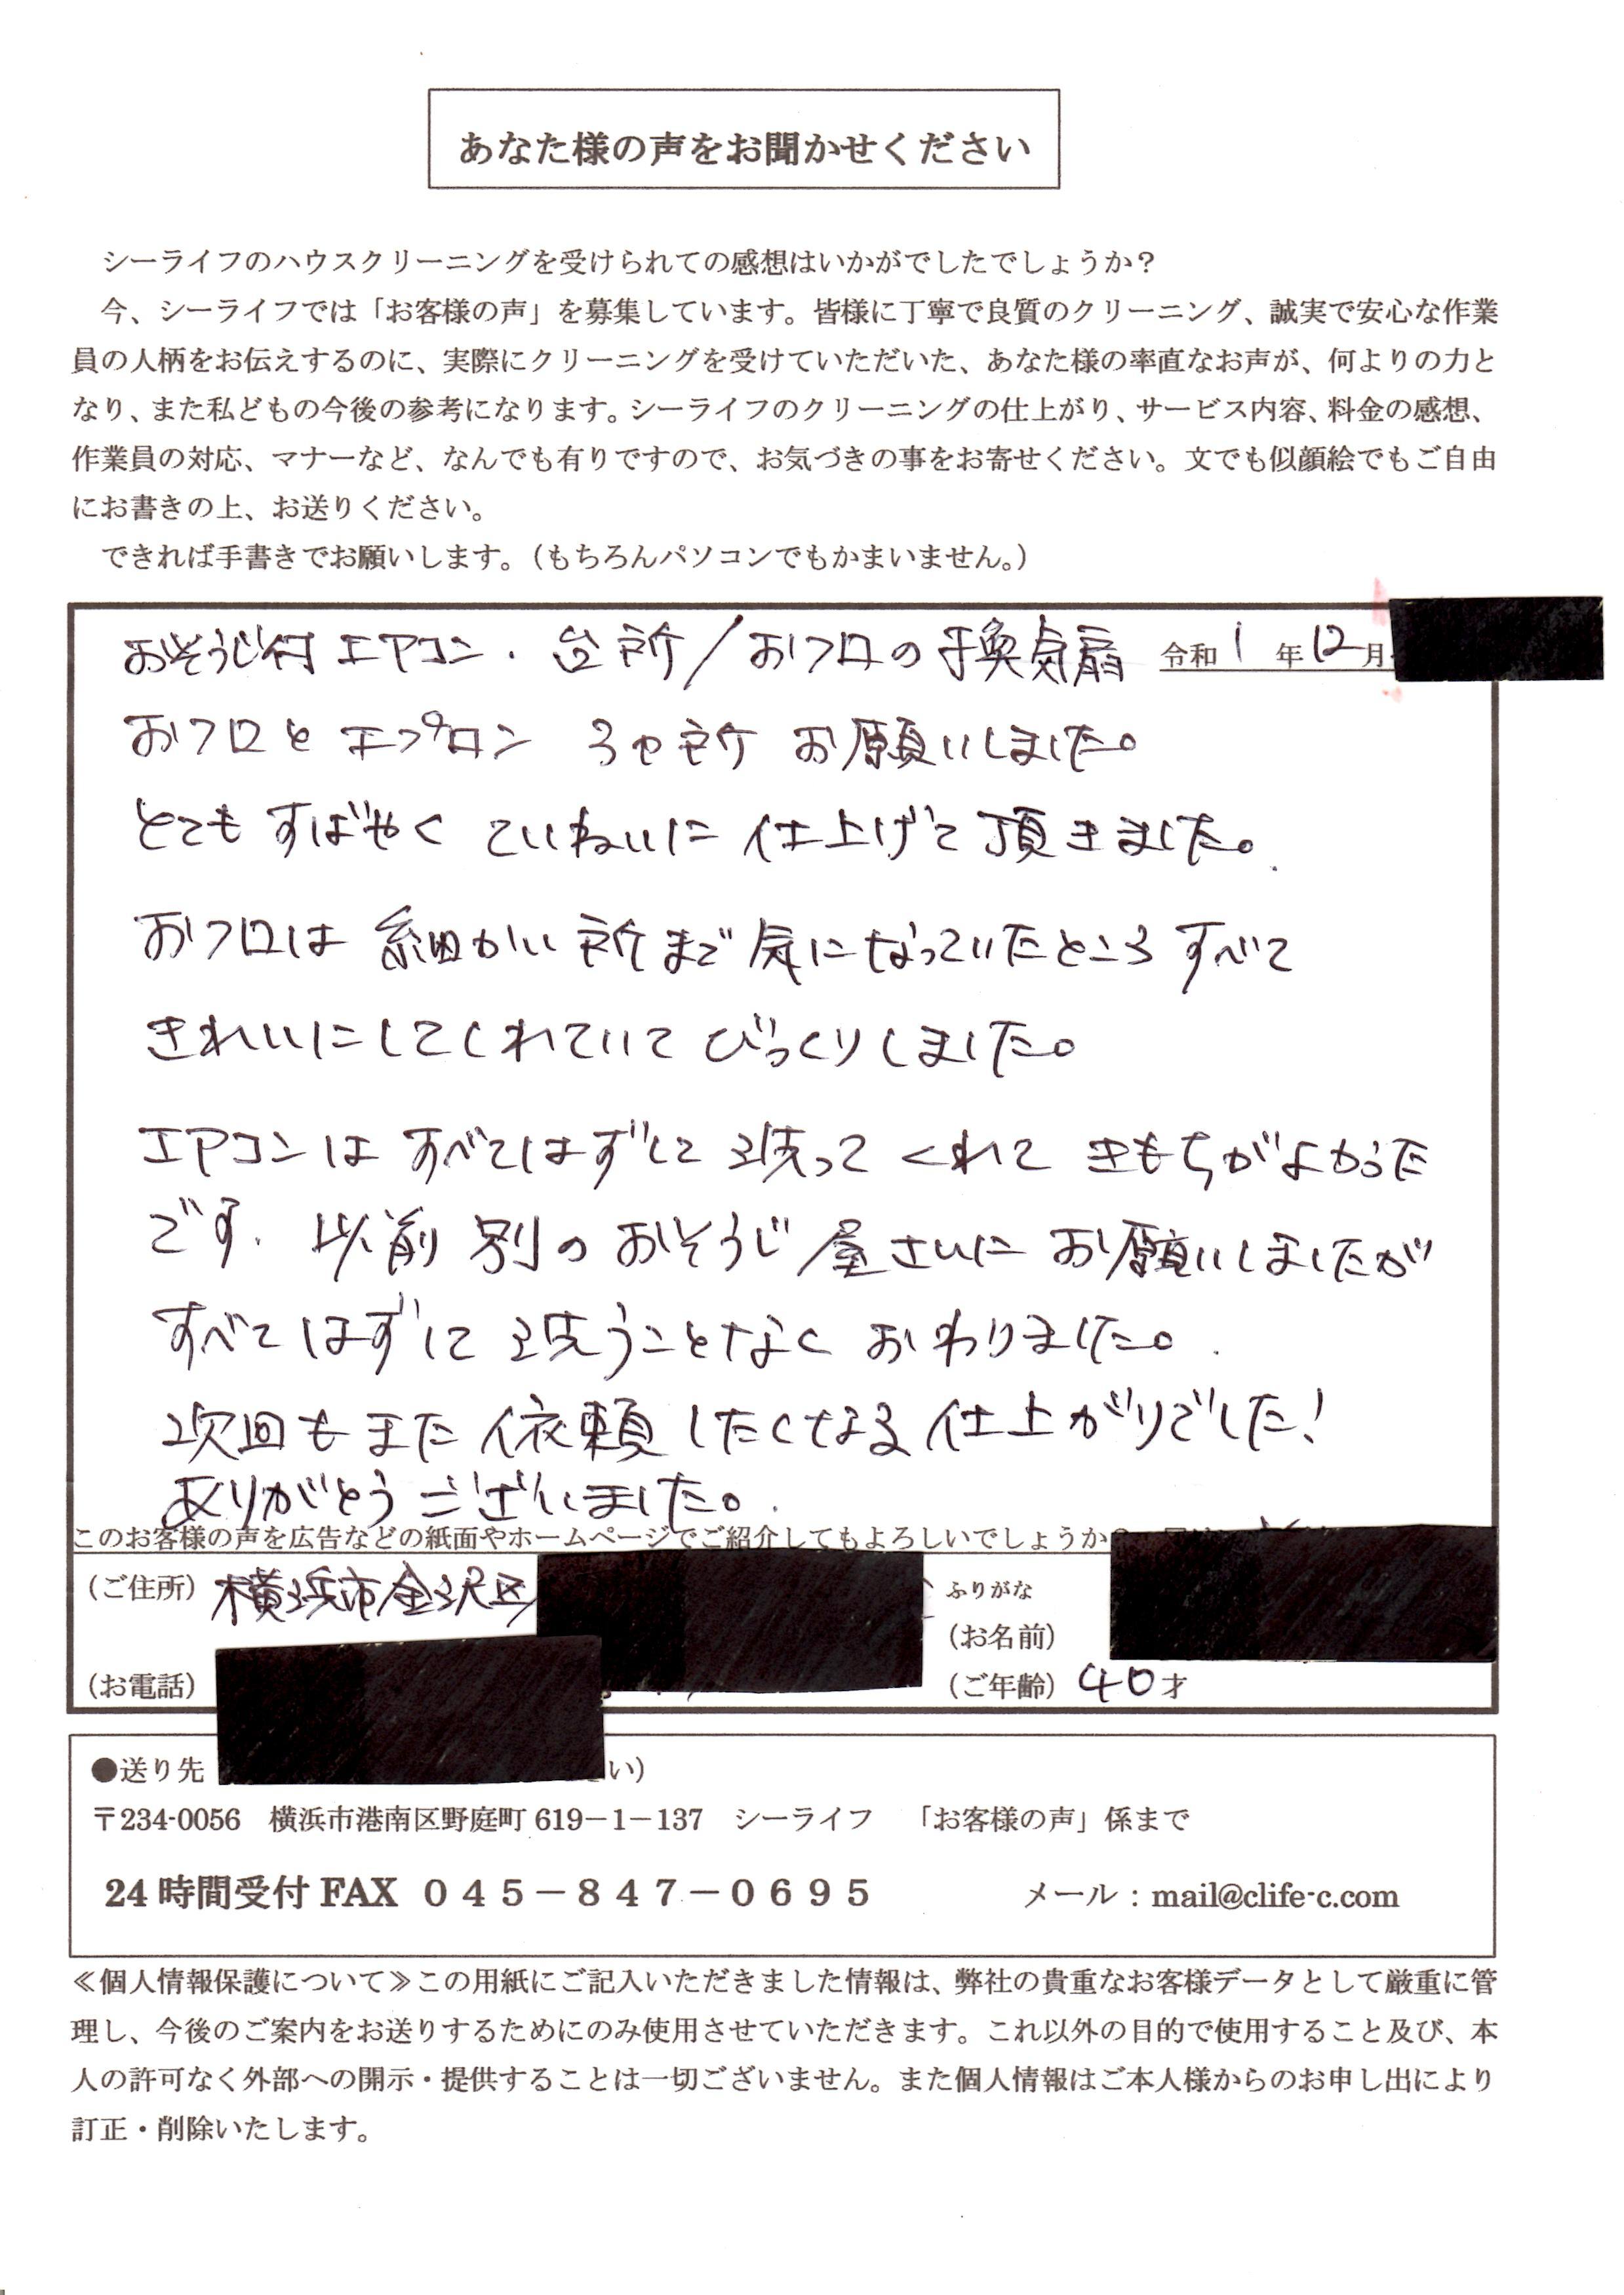 あなた様の声をお聞かせください
シーライフのハウスクリーニングを受けられての感想はいかがでしたでしょうか？
今、シーライフでは「お客様の声」を募集しています。皆様に丁寧で良質のクリーニング、誠実で安心な作業
員の人柄をお伝えするのに、実際にクリーニングを受けていただいた、あなた様の率直なお声が、何よりの力と
なり、また私どもの今後の参考になります。シーライフのクリーニングの仕上がり、サービス内容、料金の感想、
作業員の対応、マナーなど、なんでも有りですので、お気づきの事をお寄せください。文でも似顔絵でもご自由
にお書きの上、お送りください。
できれば手書きでお願いします。（もちろんパソコンでもかまいません。）
おそうじ付エアコン．台所／おフロの換気扇 令和1年12月
おフロとエプロン ３ヶ所 お願いしました。
とてもすばやく ていねいに 仕上げて頂きました。
おフロは 細かい所まで気になっていたところ すべて
きれいにしてくれていて びっくりしました。
エアコンは すべてはずして洗って くれて きもちがよかった
です．以前別のおそうじ屋さんに お願いしましたが
すべてはずして洗うことなく おわりました。
次回もまた依頼したくなる仕上がりでした！
ありがとうございました。
このお客様の声を広告などの紙面やホームページでご紹介してもよろしいでしょうか
（ご住所）横浜市金沢区 ふりがな
（お名前）
（お電話） （ご年齢）40才
●送り先 い）
〒234-0056 横浜市港南区野庭町619－1－137 シーライフ 「お客様の声」係まで
24時間受付FAX ０４５－８４７－０６９５ メール：mail@clife-c.com
≪個人情報保護について≫この用紙にご記入いただきました情報は、弊社の貴重なお客様データとして厳重に管
理し、今後のご案内をお送りするためにのみ使用させていただきます。これ以外の目的で使用すること及び、本
人の許可なく外部への開示・提供することは一切ございません。また個人情報はご本人様からのお申し出により
訂正・削除いたします。